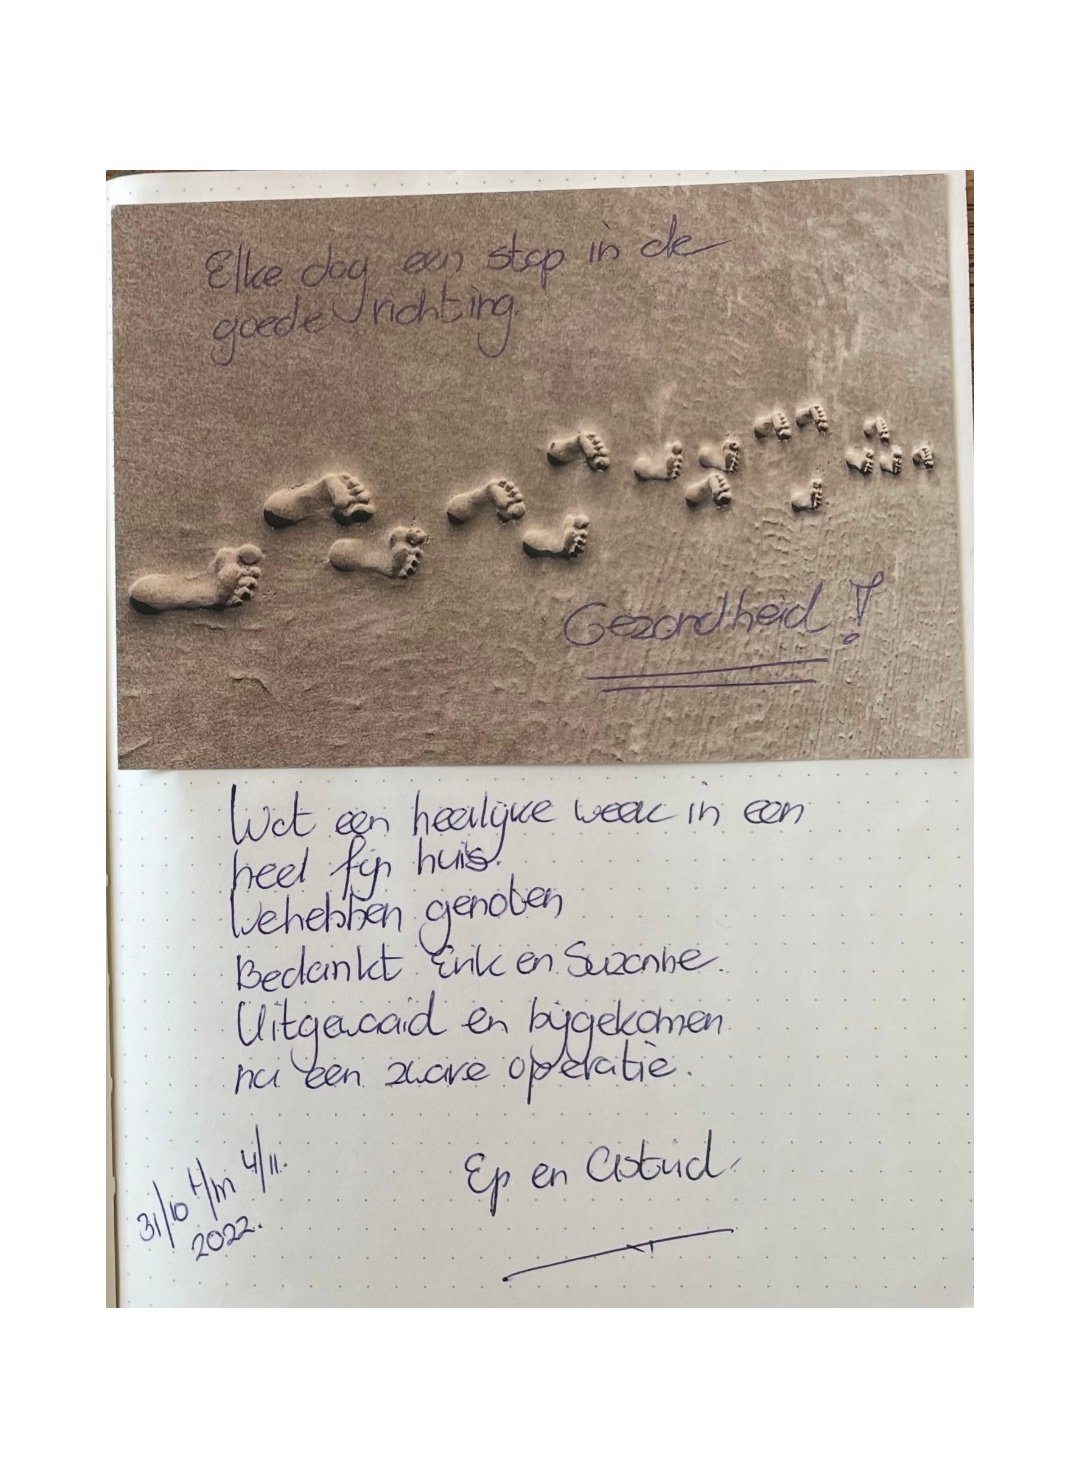 Elke dag een stap in de
goede richting.
Gezondheid!
Wat een heerlijke week in een
heel fijn huis.
We hebben genoten
Bedankt Erik en Suzanne.
Uitgewaaid en bijgekomen
na een zware operatie.
Ep en Astrid.
31/10 t/m 4/11.
2022.